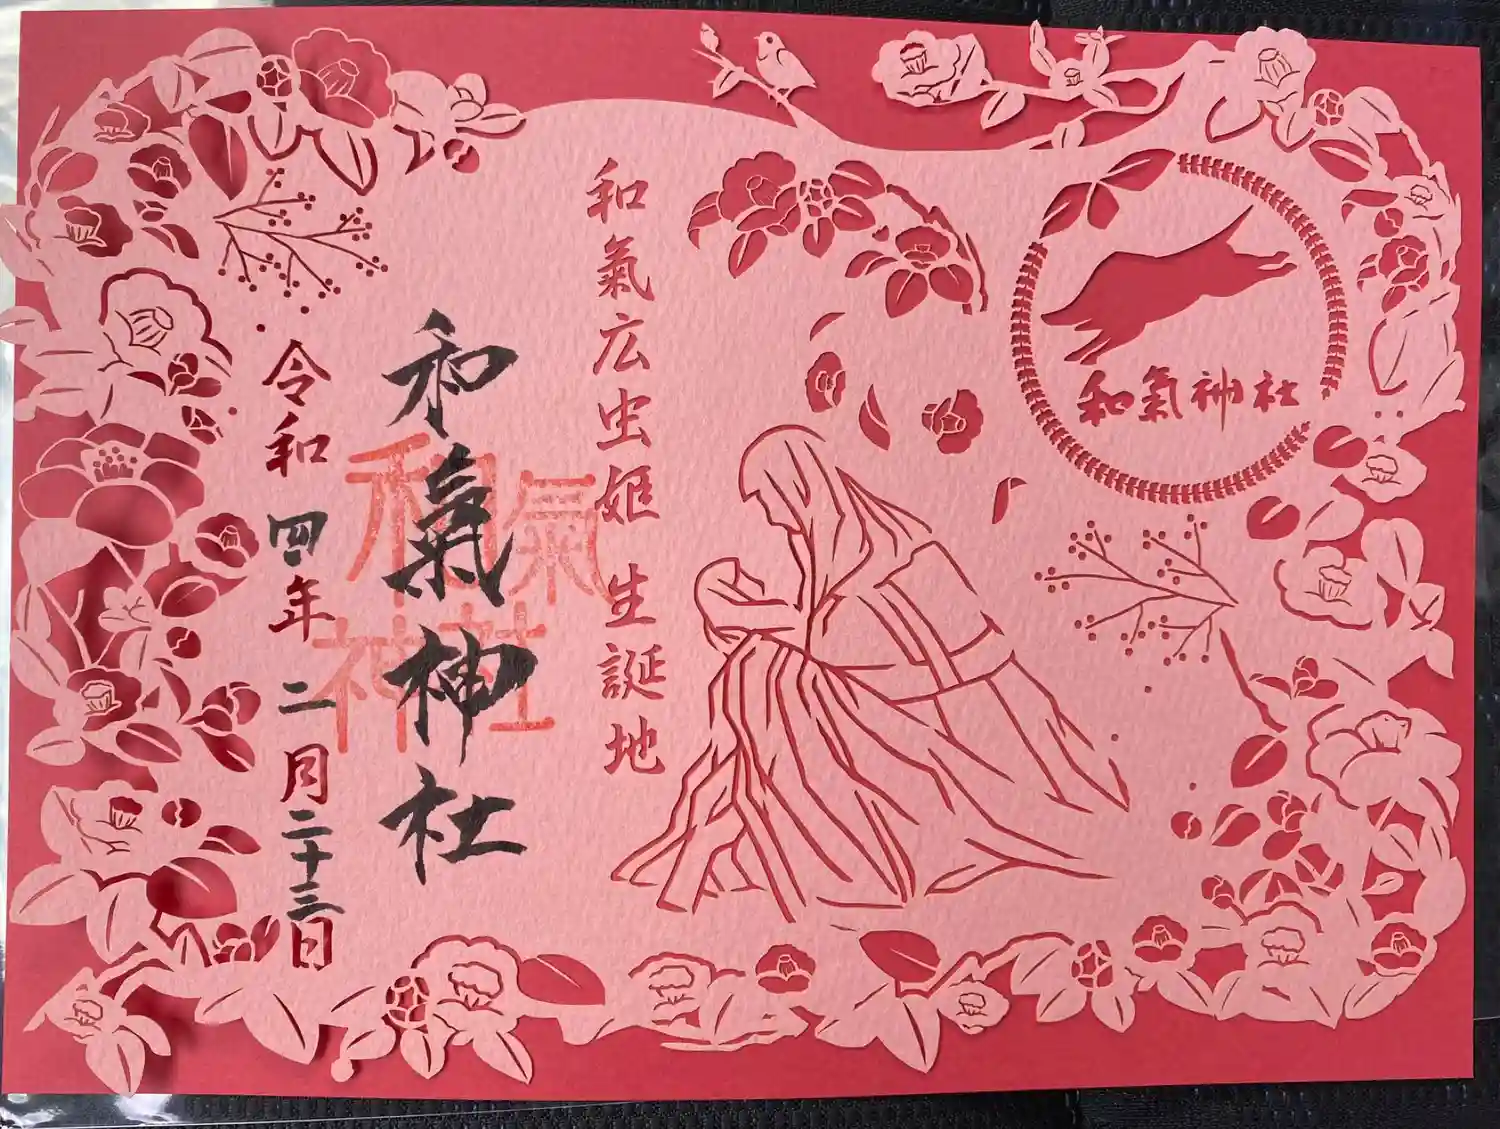 和氣神社
和氣広虫姫 生誕地
和氣神社
和氣神社
令和四年二月二十三日